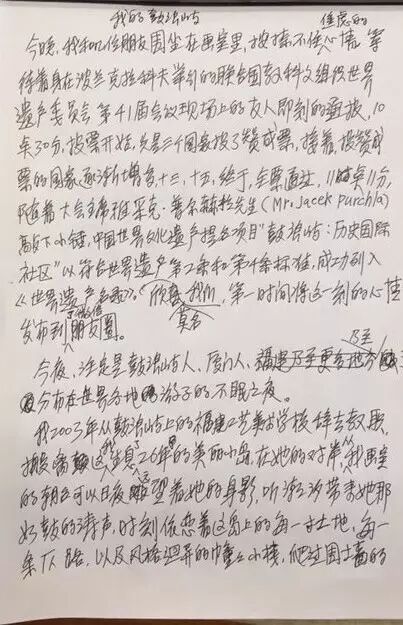 我的鼓浪屿
焦虑的
今晚,我和几位朋友围坐在画室里,按捺不住心情,等
待着身在波兰克拉科夫举行的联合国教科文组织世界
遗产委员会第41届会议现场上的友人即刻的通报,10
点30分,投票开始,先是三个国家投了赞成票,接着,投赞成
票的国家逐渐增多,十三,十五,终于,全票通过,11时11分,
随着大会主席雅采克·普尔赫拉先生(Mr. Jacek Purchla)
敲下小锤,中国世界文化遗产提名项目"鼓浪屿:历史国际
社区"以符合世界遗产第2条和第4条标准,成功列入
《世界遗产名录》。欣喜我们,第一时间将这一刻的心情
莫名
发布到朋友圈。
微信
今夜,注定是鼓浪屿人、厦门人、福建乃至更多地方
乃至
分布在世界各地游子的不眠之夜。
我2003年从鼓浪屿上的福建工艺美术学校辞去教职,
搬离这生息26年的美丽小岛,在她的对岸,从我画室
的朝夕可以日夜望着她的身影,听海浪带来她那
如鼓的涛声,时刻依恋着这岛上的每一寸土地,每一
条小路,以及风格迥异的幢幢小楼,爬过围墙的